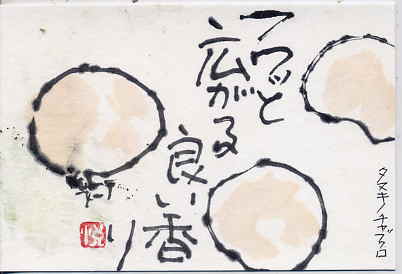 フワッと
広がる
良い香
り
タヌキノチャブクロ